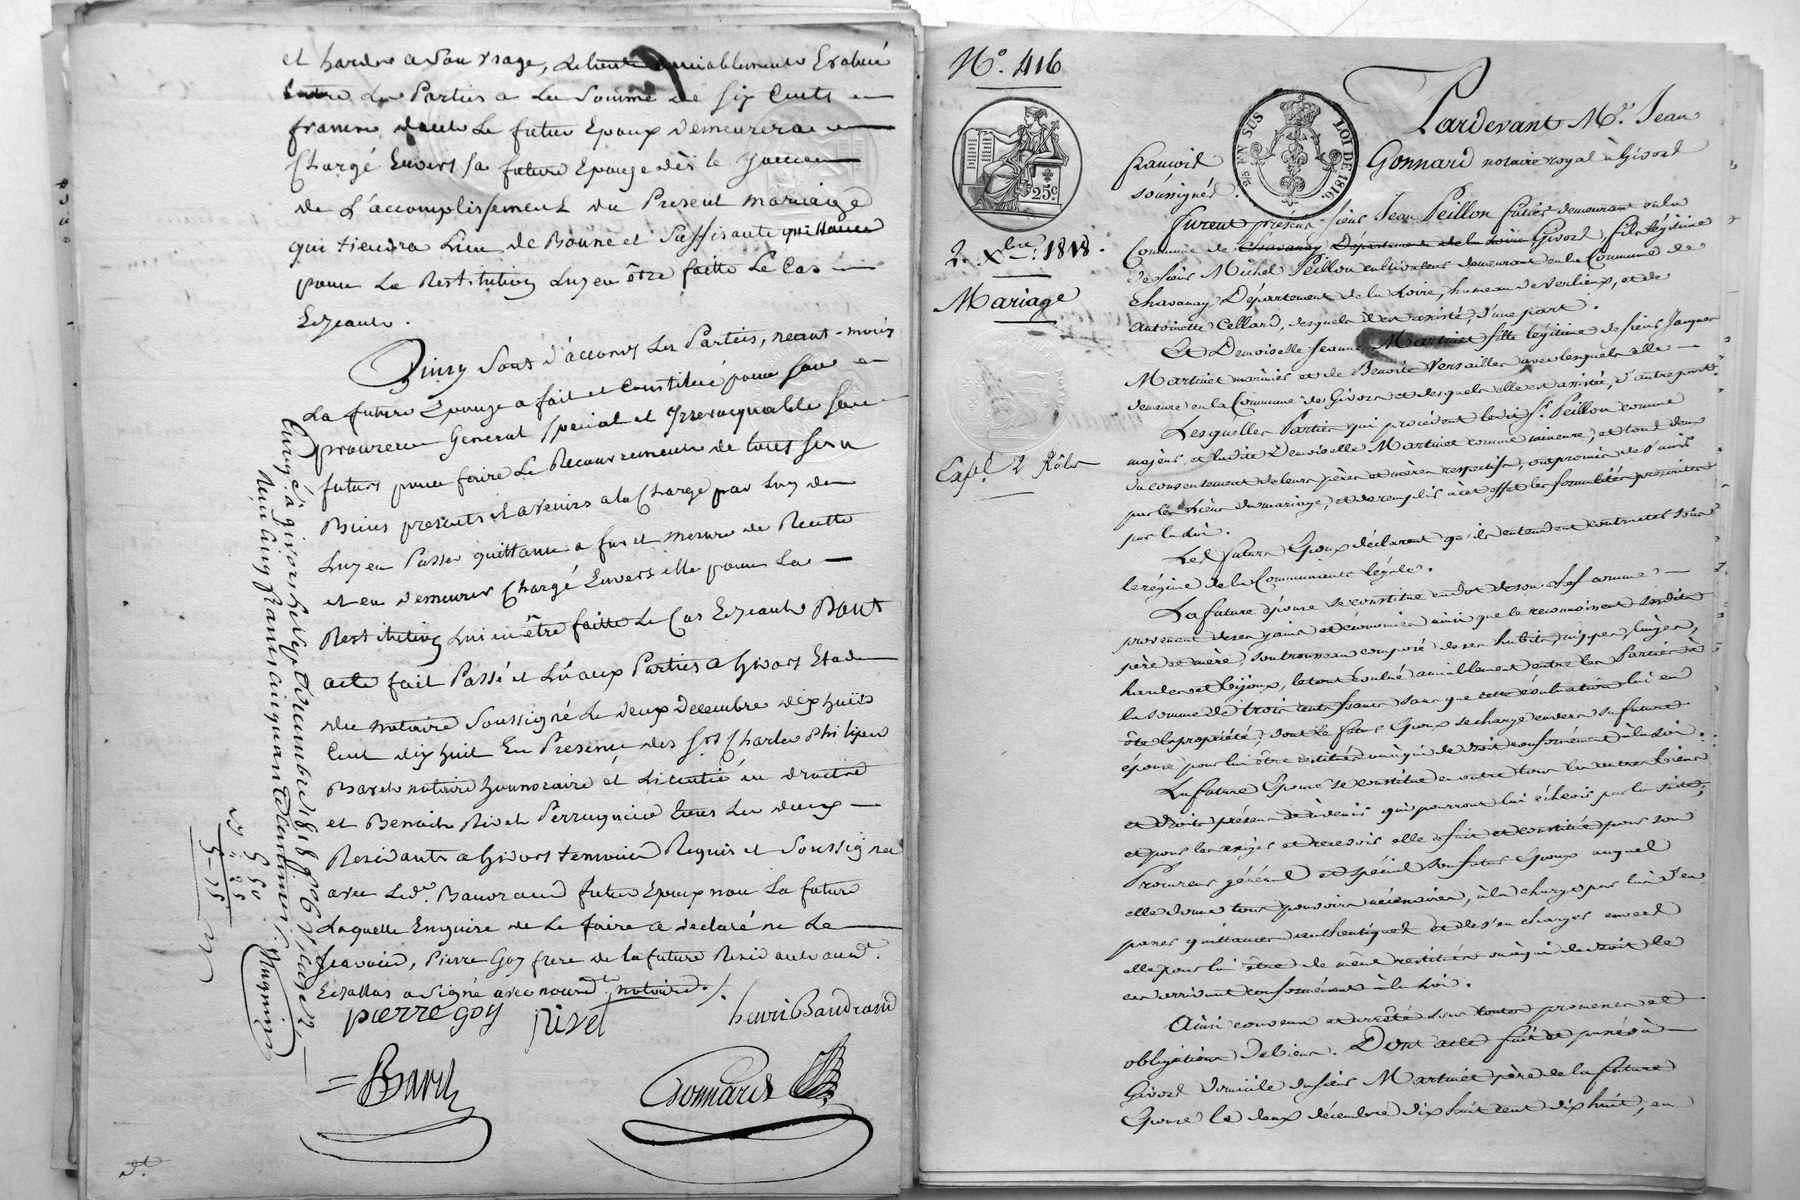 et hardes a Son Usage, Le tout amiablement Evalué
Entre Les Parties a La Somme de Six Cents
francs dont Le futur Epoux demeurera
Chargé Envers sa future Epouse dès le Jour
de L'accomplissement du Present mariage
qui tiendra Lieu de Bonne et Suffisante quittance
pour La Restitution Luy en être faitte Le Cas
Echeant.
Ainsy Sont d'accord Les Parties,
La future Epouze a fait et Constitué pour Son
procureur General Special et Irrevoquable Son
futur pour faire Le Recouvrement de tous Ses
Biens presents et avenirs a la Charge par Luy de
Luy en Passer quittance a fur et mesure de Recette
et en demeurer Chargé Envers elle pour La
Restitution Lui en être faitte Le Cas Echeant Dont
acte fait Passé et Lû aux Parties a Givors Etude
du notaire Soussigné Le deux decembre dix huit
Cent dix huit En Presence des Srs Charles Philipe
Barel notaire honnoraire et Licentié en droit
et Benoit Rivet Perruquier tous Les deux
Residants a Givors temoins Requis et Soussignés
avec Led. Baudrand futur Epoux non La future
Laquelle Enquise de Le faire a declaré ne Le
Savoir, Pierre Goy frere de la future Residant aud.
Echallas a Signé avec nous d. notaire ./.
pierre goy rivet henri Baudrand
Barel Gonnard
Enregé à givors le Sept decembre 1818
Reçu Cinq francs Cinquante Centimes
5 50
N° 416
EN SUS LOI DE 1816
25c
Pardevant Me. Jean
François Gonnard notaire royal à Givors
soussigné.
Furent présens sieur Jean Peillon futier demeurant en la
Commune de Chavanay Département de la Loire Givors fils légitime
de sieur Michel Peillon cultivateur demeurant en la Commune de
Chavanay Département de la Loire, hameau de Verlieux, et de
Antoinette Cellard, desquels il est assisté, d'une part.
2. Xbre. 1818.
Mariage
Et Demoiselle Jeanne Martinet fille légitime de sieur Jacques
Martinet marinier et de Benoite Versailler avec lesquels elle
demeure en la Commune de Givors et desquels elle est assistée, d'autre part.
Lesquelles Parties qui procèdent led. Sr. Peillon comme
majeur et ladite Demoiselle Martinet comme mineure, et tous deux
du consentement de leurs pères et mères respectifs, ont promis de s'unir
par les liens du mariage, et de remplir à cet effet les formalités prescrites
par la loi.
Expé. 2 Rôles
Les futurs Epoux déclarent qu'ils entendent contracter sous
le régime de la Communauté légale.
La future épouse se constitue en dot de son chef
provenant de ses gains et économies ainsi que le reconnoissent ses dits
père et mère, son trousseau composé de ses habits, nippes, linges,
hardes et bijoux, le tout évalué amiablement entre les Parties à
la somme de trois cents francs sans que cette évaluation lui en
ôte la propriété, dont le futur Epoux se charge envers sa future
épouse pour lui être restitués ou à qui de droit conformément à la loi.
La future Epouse se constitue en outre tous les autres biens
et droits présens et à venir qui pourront lui échoir par la suite,
et pour les exiger et recevoir elle a fait et constitué pour son
Procureur général et spécial son futur Epoux auquel
elle donne tous pouvoirs nécessaires, à la charge par lui d'en
passer quittances authentiques et de s'en charger envers
elle pour lui être de même restitués ou à qui de droit le
cas arrivant conformément à la loi.
Ainsi convenu et arrêté sous toutes promesses et
obligations de biens. Dont acte fait et passé à
Givors domicile du sieur Martinet père de la future
Epouse le deux décembre dix huit cent dix huit, en